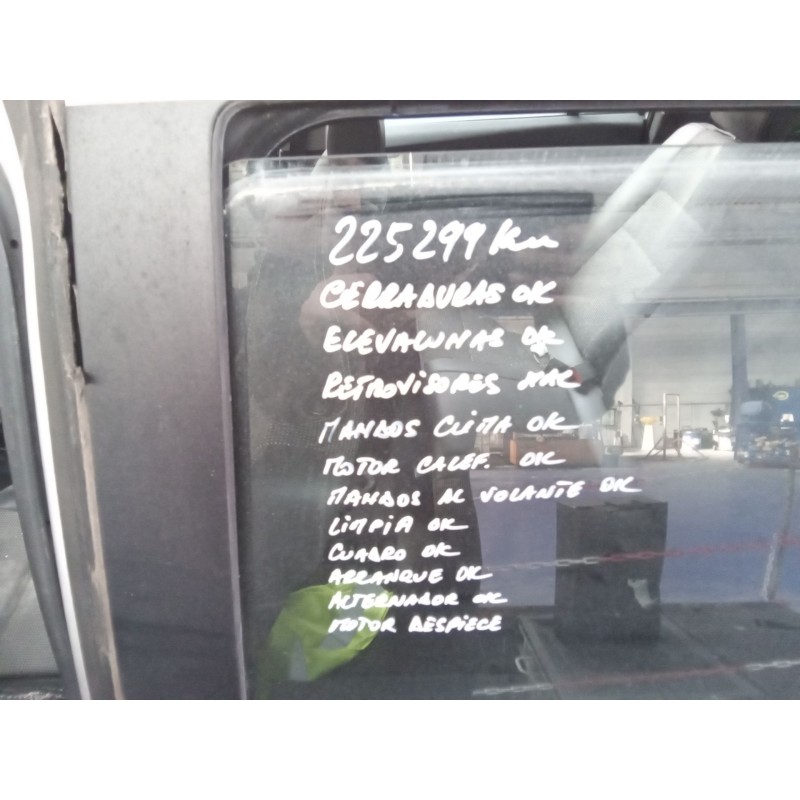 225299 Km
CERRADURAS OK
ELEVALUNAS OK
RETROVISORES MAL
MANDOS CLIMA OK
MOTOR CALEF. OK
MANDOS AL VOLANTE OK
LIMPIA OK
CUADRO OK
ARRANQUE OK
ALTERNADOR OK
MOTOR DESPIECE